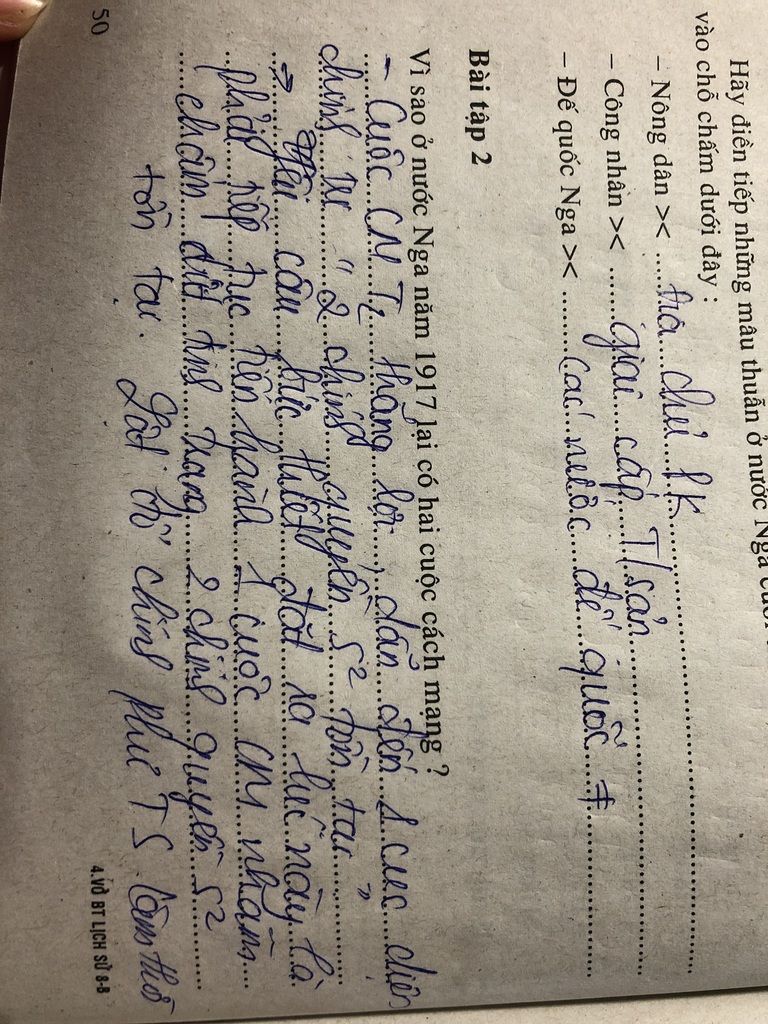 Hãy điền tiếp những mâu thuẫn ở nước Nga cuối
vào chỗ chấm dưới đây :
– Nông dân >< địa chủ PK
– Công nhân >< giai cấp T/sản
– Đế quốc Nga >< các nước đế quốc ≠
Bài tập 2
Vì sao ở nước Nga năm 1917 lại có hai cuộc cách mạng ?
- Cuộc CM T2 thắng lợi, dẫn đến 1 cục diện
chính trị " 2 chính quyền s² tồn tại "
→ yêu cầu bức thiết đặt ra lúc này là
phải tiếp tục tiến hành 1 cuộc CM nhằm
chấm dứt tình trạng 2 chính quyền s²
tồn tại. Lật đổ chính phủ TS lâm thời
50
4.VỞ BT LỊCH SỬ 8-B